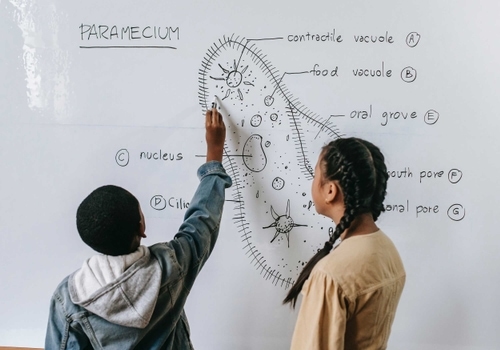 PARAMECIUM
contractile vacuole A
food vacuole B
oral grove E
C nucleus
pore F
D
pore G